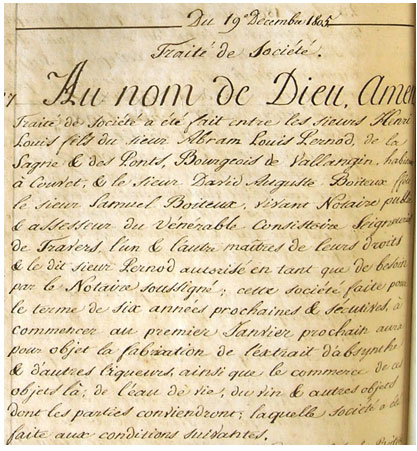 Du 19e Décembre 1805
Traité de Société.
Au nom de Dieu, Amen
Traité de Société a été fait entre les sieurs Henri
Louis fils du sieur Abram Louis Pernod, de la
Sagne & des Ponts, Bourgeois de Vallangin, habi
à Couvet; & le sieur David Auguste Boiteux
le sieur Samuel Boiteux, vivant Notaire publ
& assesseur du Vénérable Consistoire Seigneuri
de Travers, l'un & l'autre maîtres de leurs droits
& le dit sieur Pernod autorisé en tant que de besoin
par le Notaire soussigné; cette société faite pour
le terme de six années prochaines & sécutives, à
commencer au premier Janvier prochain aura
pour objet la fabrication de l'extrait d'absynthe
& d'autres liqueurs, ainsi que le commerce de ces
objets là; de l'eau de vie, du vin & autres objets
dont les parties conviendront; laquelle société a été
faite aux conditions suivantes.